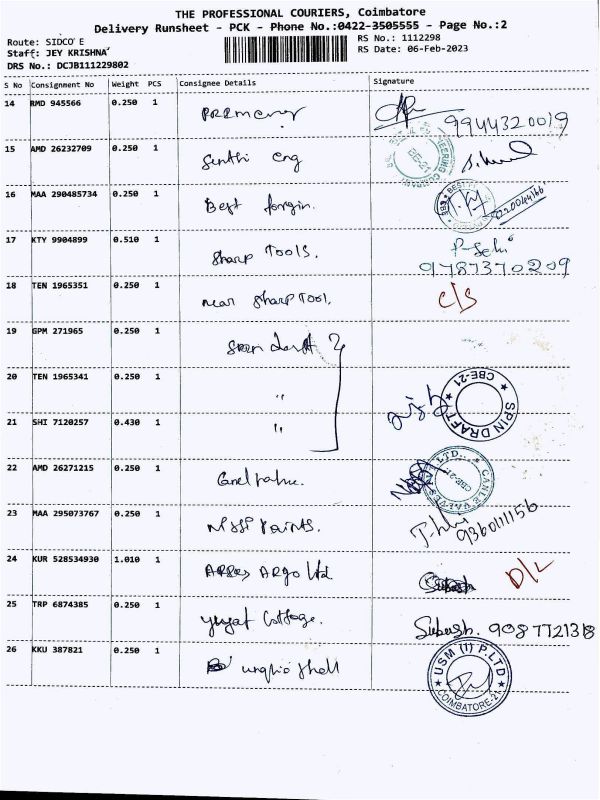 THE PROFESSIONAL COURIERS, Coimbatore
Delivery Runsheet - PCK - Phone No.:0422-3505555 - Page No.:2
Route: SIDCO E
RS No.: 1112298
Staff: JEY KRISHNA
RS Date: 06-Feb-2023
DRS No.: DCJB111229802
S No Consignment No Weight PCS Consignee Details Signature
14 RMD 945566 0.250 1
9944320019
15 AMD 26232709 0.250 1 Senthi eng
16 MAA 290485734 0.250 1 Best forgin.
17 KTY 9904899 0.510 1 Sharp Tools.
9787370209
18 TEN 1965351 0.250 1 near Sharp Tool. C/S
19 GPM 271965 0.250 1
20 TEN 1965341 0.250 1 "
CBE-21
SPIN DRAFT
21 SHI 7120257 0.430 1 "
22 AMD 26271215 0.250 1
23 MAA 295073767 0.250 1 Paints.
9360111156
24 KUR 528534930 1.010 1 Argo Ltd D/L
25 TRP 6874385 0.250 1 Cottage. Subash. 9087721318
26 KKU 387821 0.250 1 shell
USM (I) P.LTD
COIMBATORE-21